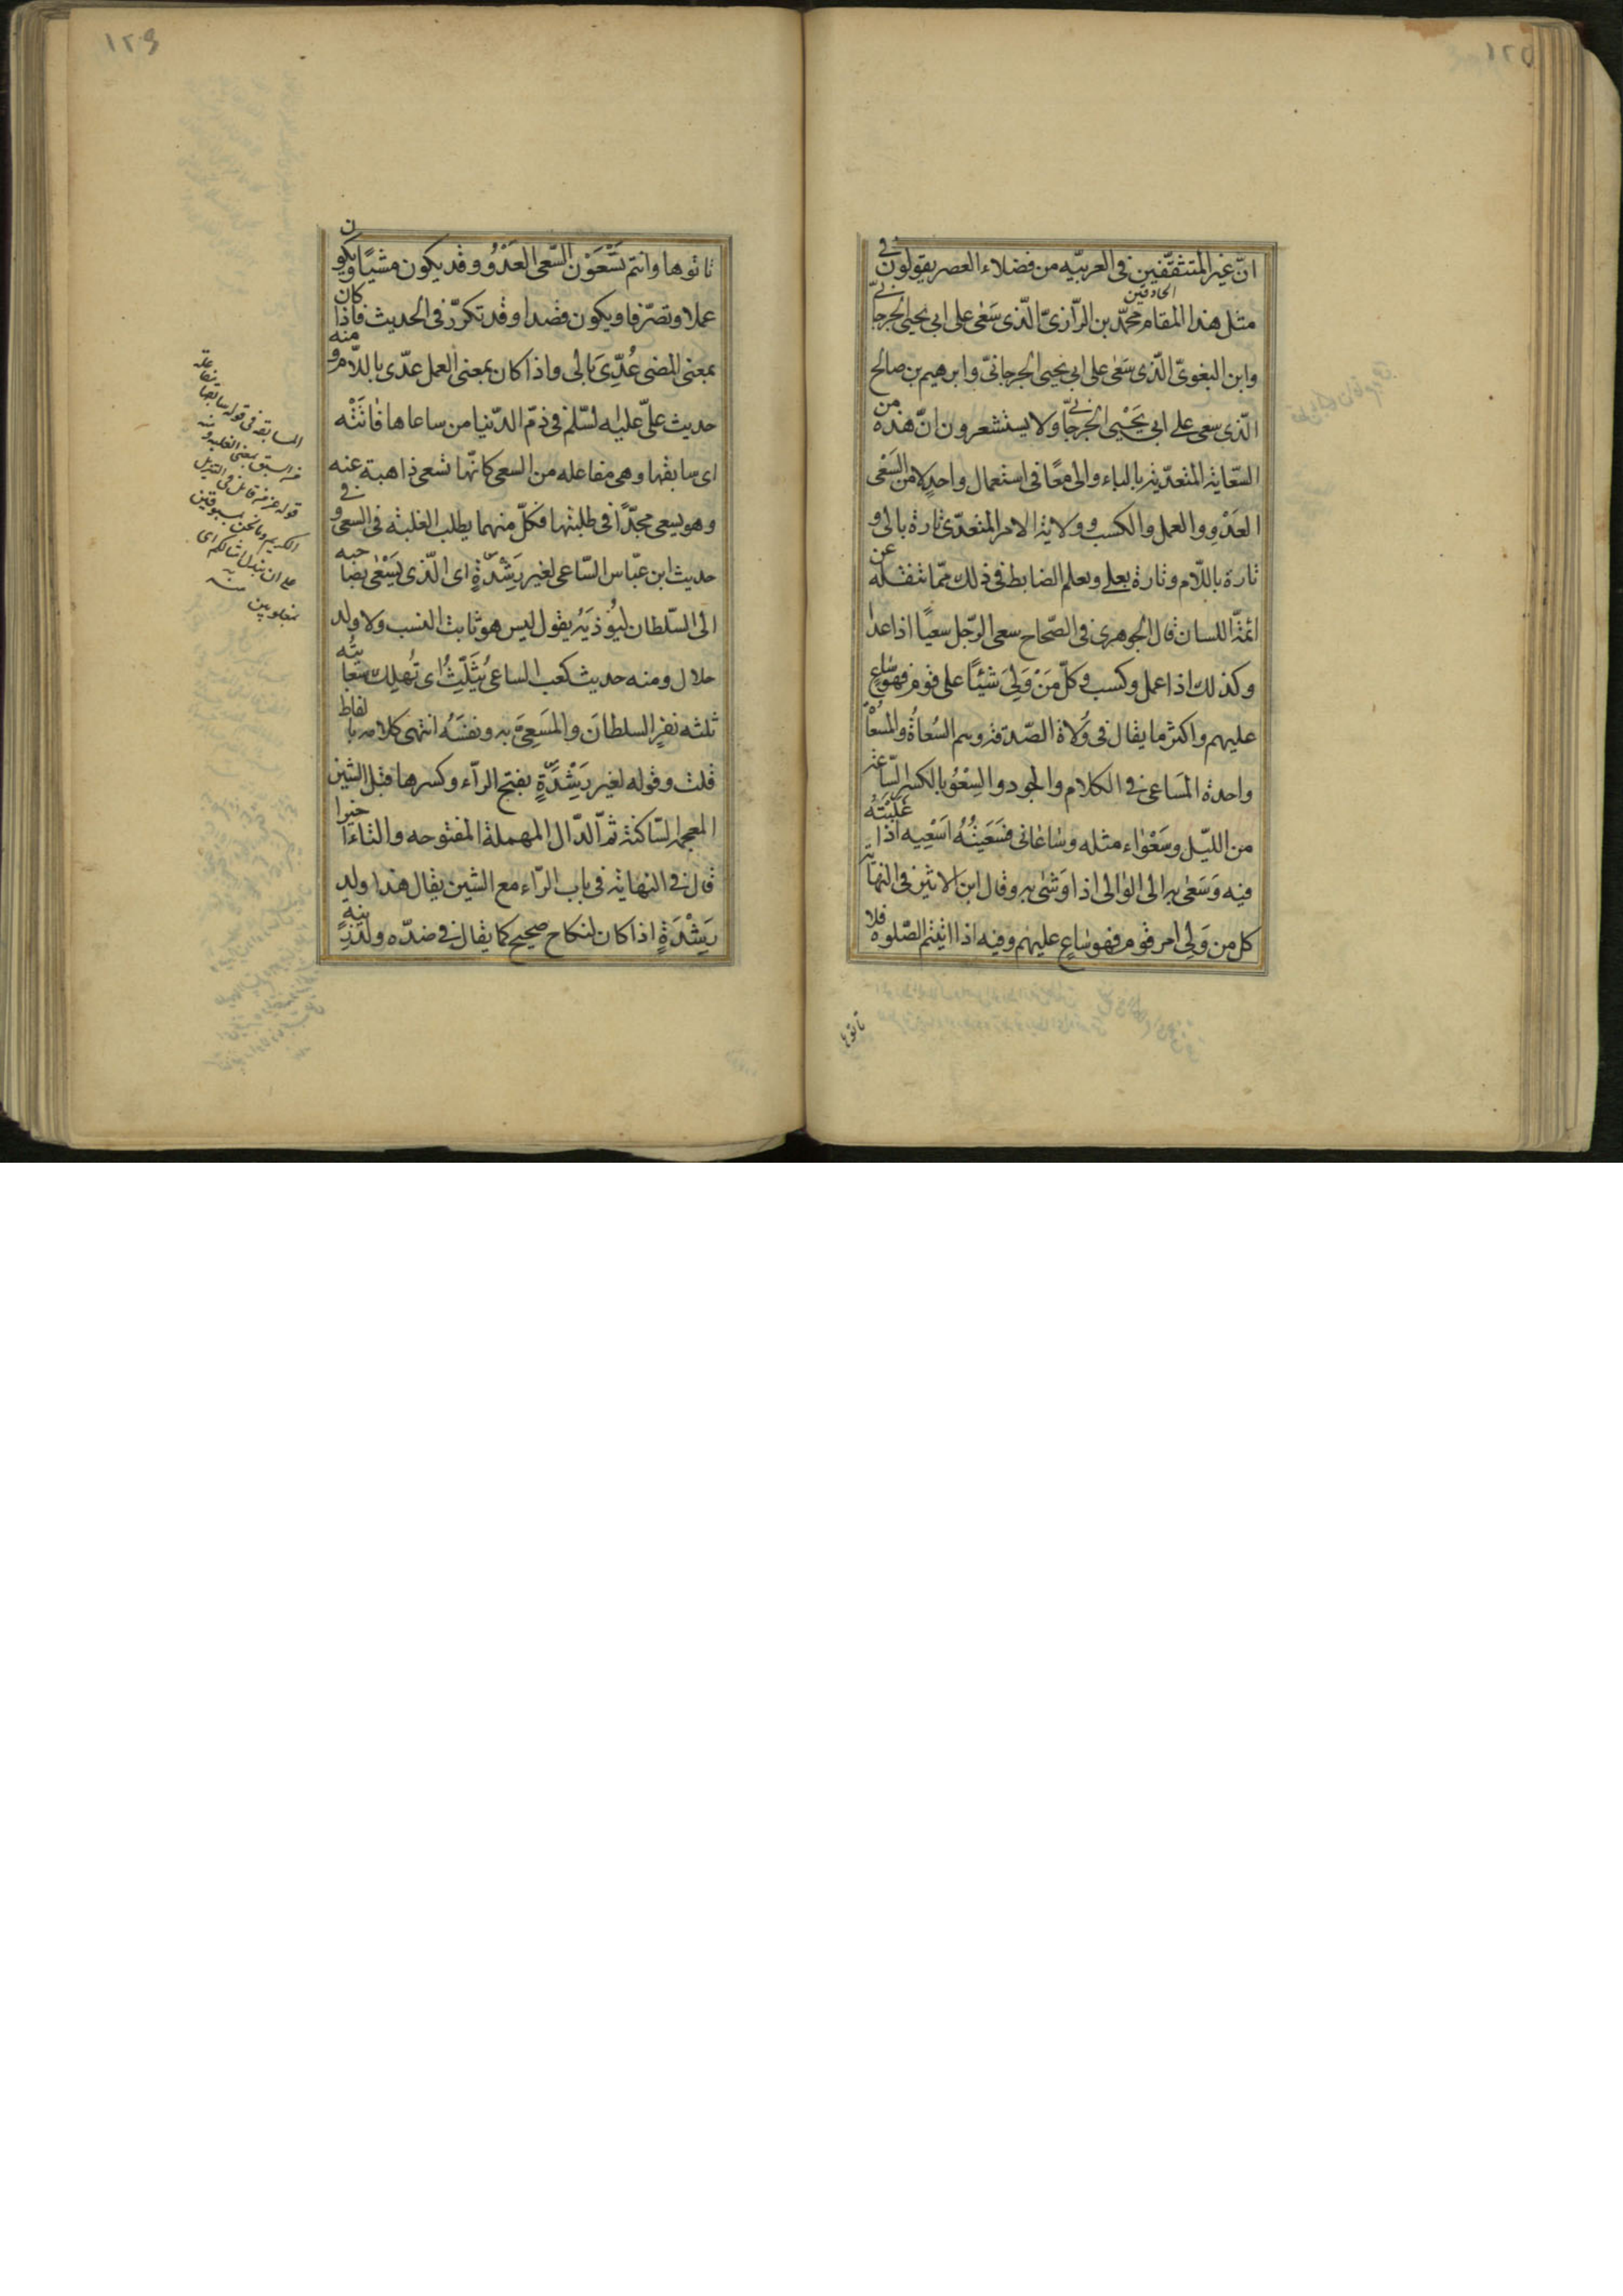 ١٢٥
انّ غير المتثقّفين في العربيّه من فضلاء العصر يقولون في
الحاذقين
مثل هذا المقام محمّد بن الرّازيّ الّذى سَعٰى على ابى يحيى الجرجانىّ
وابن البغوىّ الّذى سَعٰى على ابى يحيى الجرجانىّ وابرهيم بن صالح
الّذى سعى على ابى يَحْيٰى الجرجانىّ ولا يستشعرون انّ هذه من
السّعاية المتعدّية بالباء والى معًا فى استعمال واحدٍ لا من السَعْى
العَدْوِ والعمل والكسب و ولاية الامر المتعدّى تارة بالى و
تارة باللّام وتارة بعلى ويعلم الضابط فى ذلك ممّا تنقله عن
ائمّة اللسان قال الجوهرى فى الصّحاح سعى الرّجل سعيًا اذا عدا
وكذلك اذا عمل وكسب وكلّ مَنْ وَلِىَ شيئًا على قوم فهو ساعٍ
عليهم واكثر ما يقال فى وُلاة الصّدقة وهم السُعاةُ والمَسْعاةُ
واحدة المَسَاعى فى الكلام والجود والسِعْوُ بالكسر السّاعة
من الليّل وسَعْوٰاء مثله وسٰاعٰانى فسَعَيْتُهُ اَسْعِيه اذا غَلَبْتَهُ
فيه وَسَعٰى به الى الوٰالى اذا وَشٰى به وقال ابن الاثير فى النهاية
كل من وَلِى امر قوم فهو سٰاعٍ عليهم وفيه اذا اتيتم الصّلوة فلا
تاتوها
١٢٦
تاتوها وانتم تَسْعَوْن السّعى العَدْوُ وقد يكون مشيًا ويكون
عملا وتصرّفا ويكون قصدا وقد تكرّر فى الحديث فاذا كان
بمعنى المضى عُدِّىَ بالى واذا كان بمعنى العمل عدّى باللّام و منه
حديث علىّ عليه لسّلم فى ذمّ الدّنيا من ساعاها فاتَتْه
اى سابقها وهى مفاعله من السعى كانّها تسعى ذاهبة عنه
وهو يسعى مجدّاً فى طلبتها فكلّ منهما يطلب الغلبة فى السعى و فى
حديث ابن عبّاس السّاعى لغير رَِشْدَةٍ اى الّذى يَسْعٰى بصاحبه
الى السّلطان ليُؤذيَهُ يقول ليس هو ثابت النسب ولا ولد
حلال ومنه حديث كعب الساعى يُثَلِّثُ اى تُهلِك بسعايته
ثلثه نفرٍ السلطانَ والمَسعِىَّ به ونفسَهُ انتهى كلامه بالفاظه
قلت وقوله لغير رَِشْدَةٍ بفتح الرآء وكسرها قبل الشين
المعجمة لسّاكنة ثمّ الدّال المهملة المفتوحه والتاء اخيرا
قال فى النهاية فى باب الرّاء مع الشين يقال هذا ولد
رَِشْدَةٍ اذا كان لنكاح صحيح كما يقال فى ضدّه ولد زنية
المسابقة فى قوله سابقها مفاعلة
من السبق بمعنى الغلبه ومنه
قوله عز من قائل فى التنزيل
الكريم وما نحن بمسبوقين
على ان نبدل امثالكم اى
بمغلوبين منه